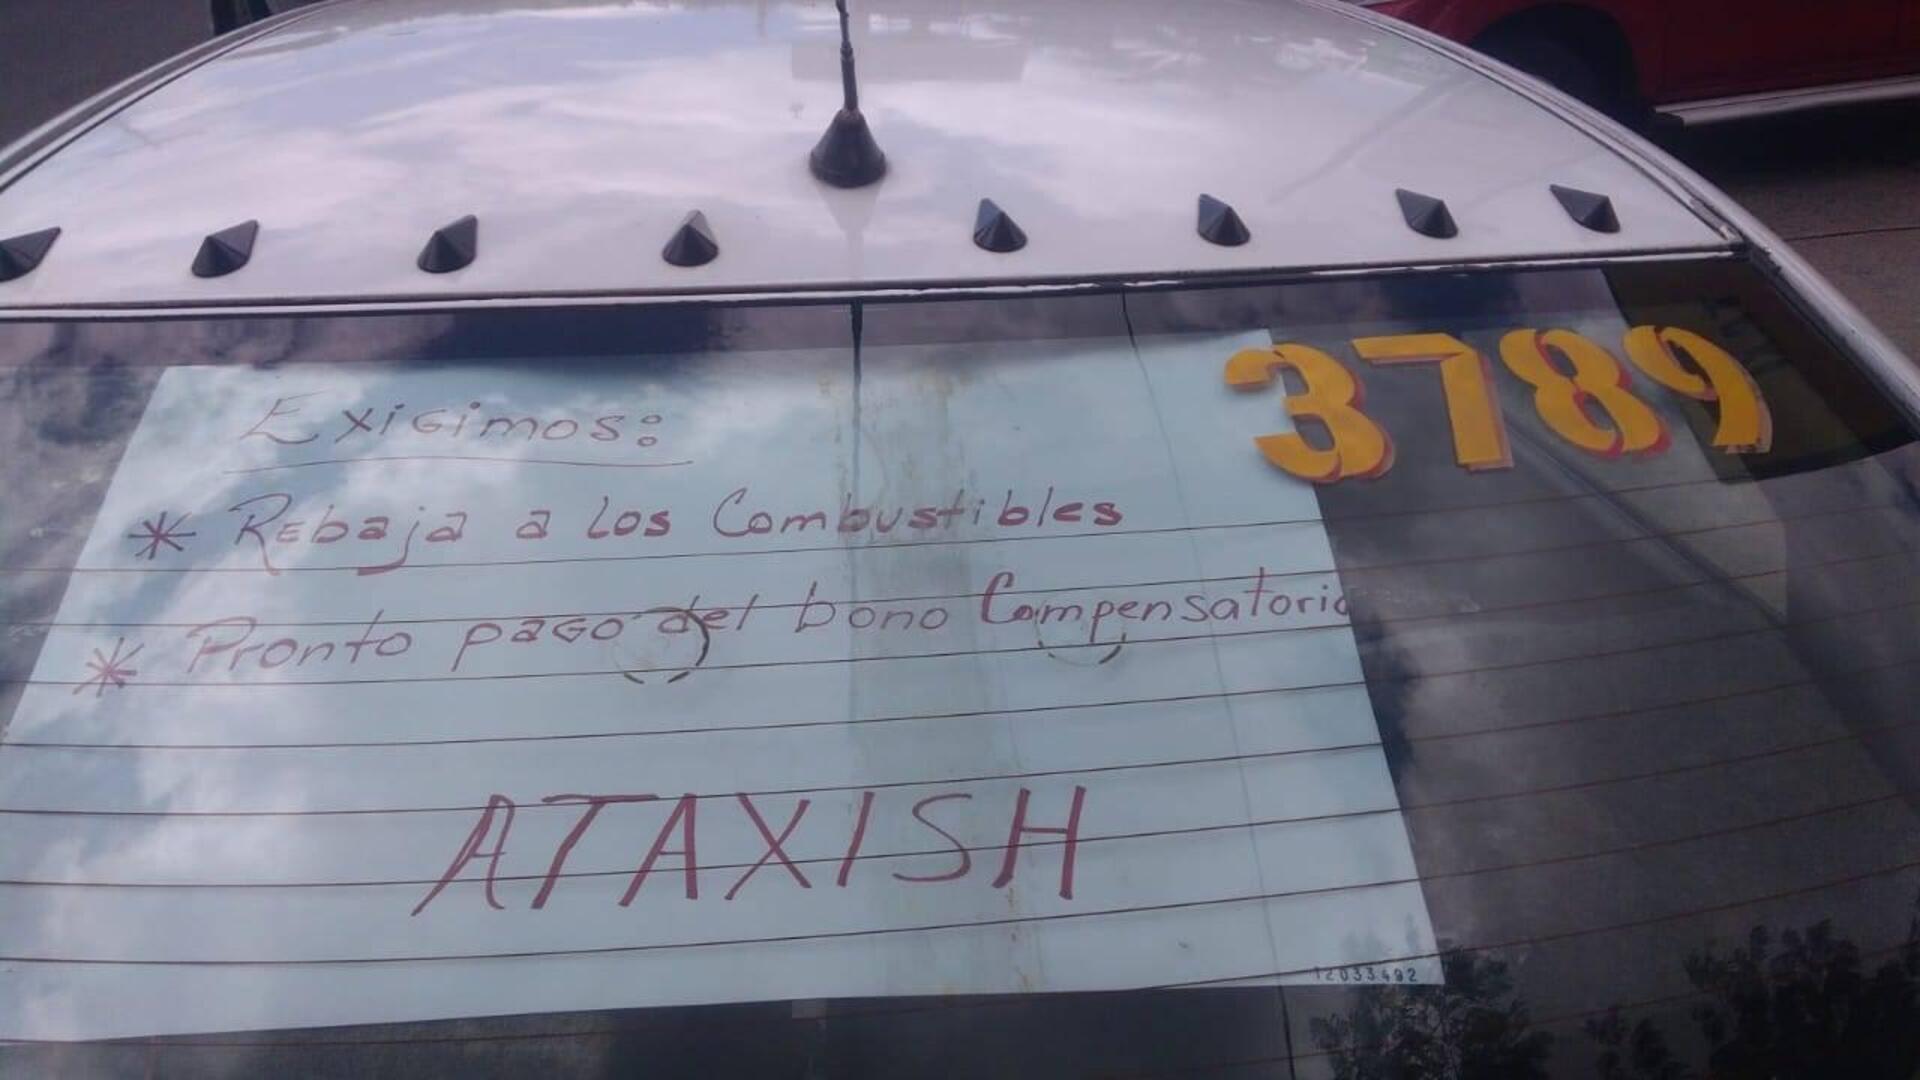 3789
Exigimos:
* Rebaja a los Combustibles
* Pronto pago del bono Compensatorio
ATAXISH
12033492